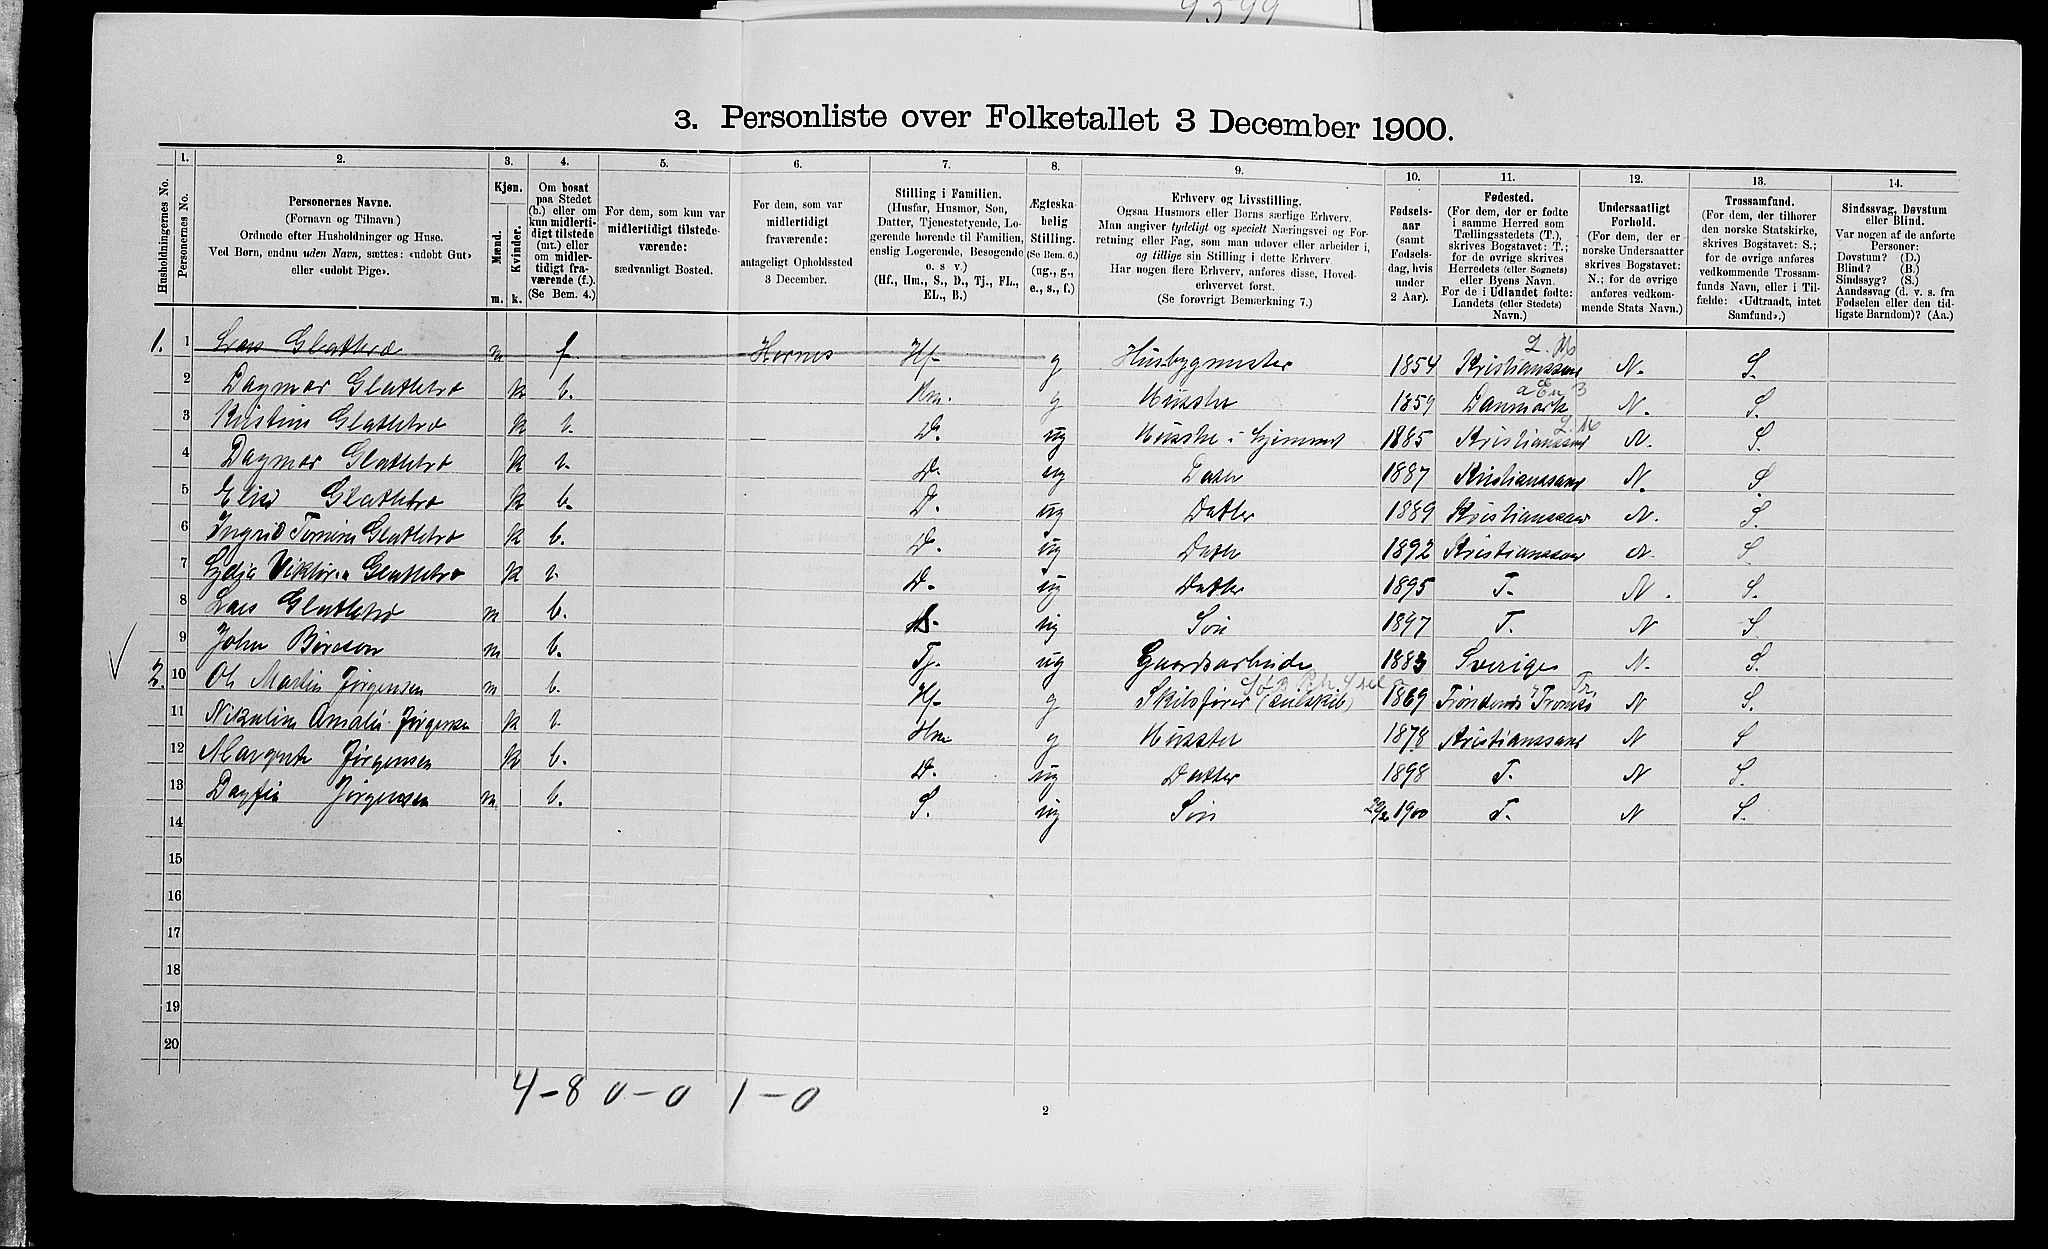 9599
3. Personliste over Folketallet 3 December 1900.
Husholdningernes No.
1.
Personernes No.
2.
Personernes Navne.
(Fornavn og Tilnavn.)
Ordnede efter Husholdninger og Huse.
Ved Børn, endnu uden Navn, sættes: «udobt Gut»
eller «udobt Pige».
3.
Kjøn.
Mænd.
Kvinder.
m.
k.
4.
Om bosat
paa Stedet
(b.) eller om
kun midlerti-
digt tilstede
(mt.) eller
om midler-
tidigt fra-
værende (f.).
(Se Bem. 4.)
5.
For dem, som kun var
midlertidigt tilstede-
værende:
sædvanligt Bosted.
6.
For dem, som var
midlertidigt
fraværende:
antageligt Opholdssted
3 December.
7.
Stilling i Familien.
(Husfar, Husmor, Søn,
Datter, Tjenestetyende, Lo-
gerende hørende til Familien,
enslig Logerende, Besøgende
o. s. v.)
(Hf., Hm., S., D., Tj., FL.,
EL., B.)
8.
Ægteska-
belig
Stilling.
(Se Bem. 6.)
(ug., g.,
e., s., f.)
9.
Erhverv og Livsstilling.
Ogsaa Husmors eller Børns særlige Erhverv.
Man angiver tydeligt og specielt Næringsvei og For-
retning eller Fag, som man udøver eller arbeider i,
og tillige sin Stilling i dette Erhverv
Har nogen flere Erhverv, anføres disse, Hoved-
erhvervet først.
(Se forøvrigt Bemærkning 7.)
10.
Fødsels-
aar
(samt
Fødsels-
dag, hvis
under
2 Aar).
11.
Fødested.
(For dem, der er fødte
i samme Herred som
Tællingsstedets (T.),
skrives Bogstavet: T.;
for de øvrige skrives
Herredets (eller Sognets)
eller Byens Navn.
For de i Udlandet fødte:
Landets (eller Stedets)
Navn.)
12.
Undersaatligt
Forhold.
(For dem, der er
norske Undersaatter
skrives Bogstavet:
N.; for de øvrige
anføres vedkom-
mende Stats Navn.)
13.
Trossamfund.
(For dem, der tilhører
den norske Statskirke,
skrives Bogstavet: S.;
for de øvrige anføres
vedkommende Trossam-
funds Navn, eller i Til-
fælde: «Udtraadt, intet
Samfund».)
14.
Sindssvag, Døvstum
eller Blind.
Var nogen af de anførte
Personer:
Døvstum? (D.)
Blind? (B.)
Sindssyg? (S.)
Aandssvag (d. v. s. fra
Fødselen eller den tid-
ligste Barndom)? (Aa.)
1. 1 Lars Glattetre m f Hornes Hf. g Husbygmester 1854 Kristianssand N. S.
2 Dagmar Glattetre k b. Hm. g Husstel 1859 Danmark N. S.
3 Kristine Glattetre k b. D. ug 1885 Kristianssand N. S.
4 Dagmar Glattetre k b. D. ug Datter 1887 Kristianssand N. S.
5 Elise Glattetre k b. D. ug Datter 1889 Kristianssand N. S.
6 Ingrid Glattetre k b. D. ug Datter 1892 Kristianssand N. S
7 Lydia Viktoria Glattetre k b. D. ug Datter 1895 T. N. S.
8 Lars Glattetre m b. S. ug Søn 1897 T. N S
9 John m b. Tj. ug Gaardsarbeider 1883 Sverige N. S.
2. 10 Ole Martin Jørgensen m b. Hf. g Skibsfører (Seilskib) 1869 N S.
11 Nikoline Amalie Jørgensen k b. Hm g Husstel 1878 Kristianssand N S
12 Margrete Jørgensen k b. D. ug Datter 1898 T. N S.
13 Dagfin Jørgensen m b. S. ug Søn 29/2 1900 T. N S.
14
15
16
17
18
19
20
4-8 0-0 1-0
2